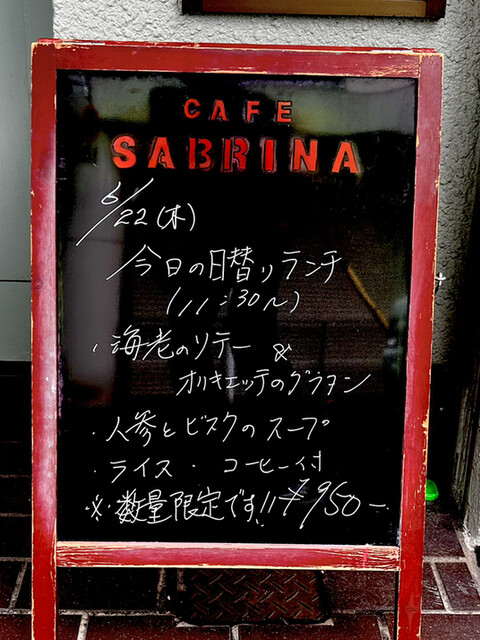 CAFE
SABRINA
6/22(木)
今日の日替りランチ
(11:30~)
・海老のソテー &
オリキエッテのグラタン
・人参とビスクのスープ
・ライス・コーヒー付
※数量限定です!! ¥950-